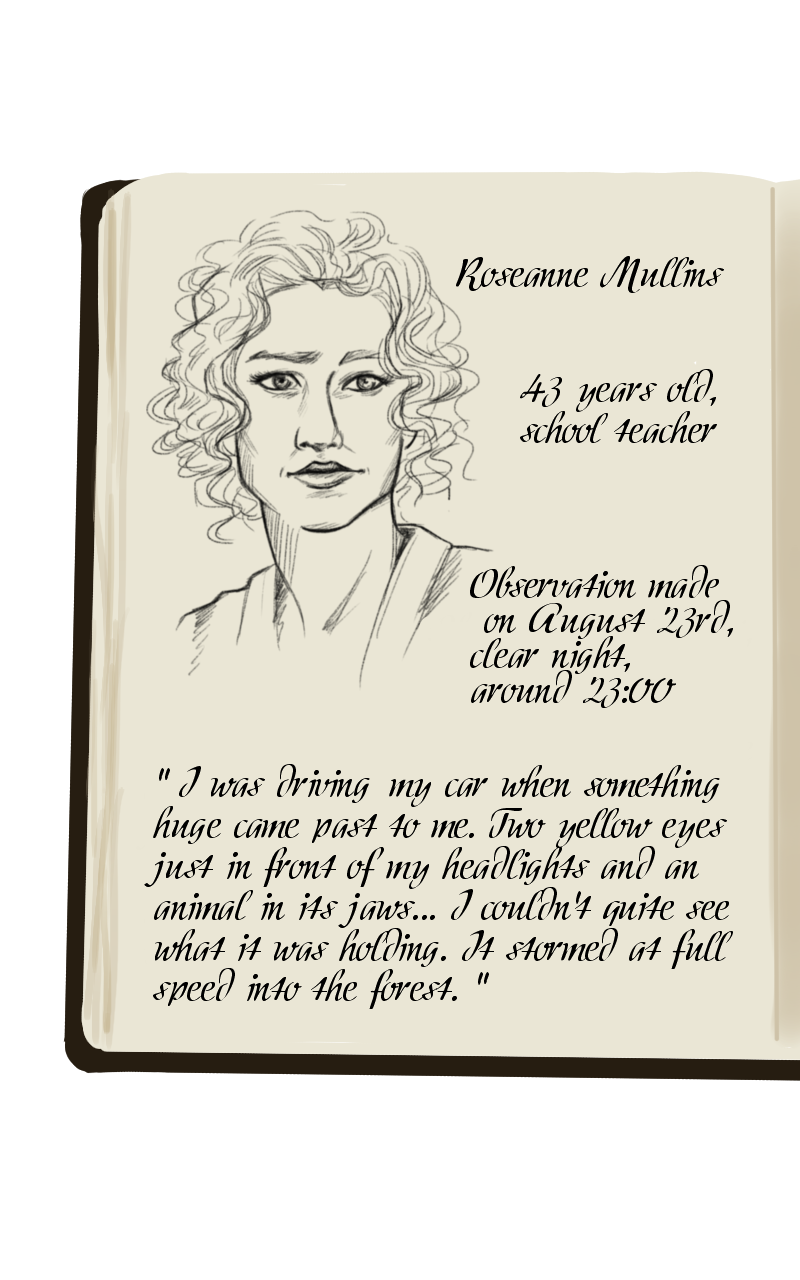 Roseanne Mullins
43 years old,
school teacher
Observation made
on August 23rd,
clear night,
around 23:00
" I was driving my car when something
huge came past to me. Two yellow eyes
just in front of my headlights and an
animal in its jaws... I couldn't quite see
what it was holding. It stormed at full
speed into the forest. "